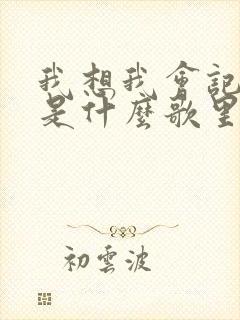 我想我會記
是什麼歌里
初雲波